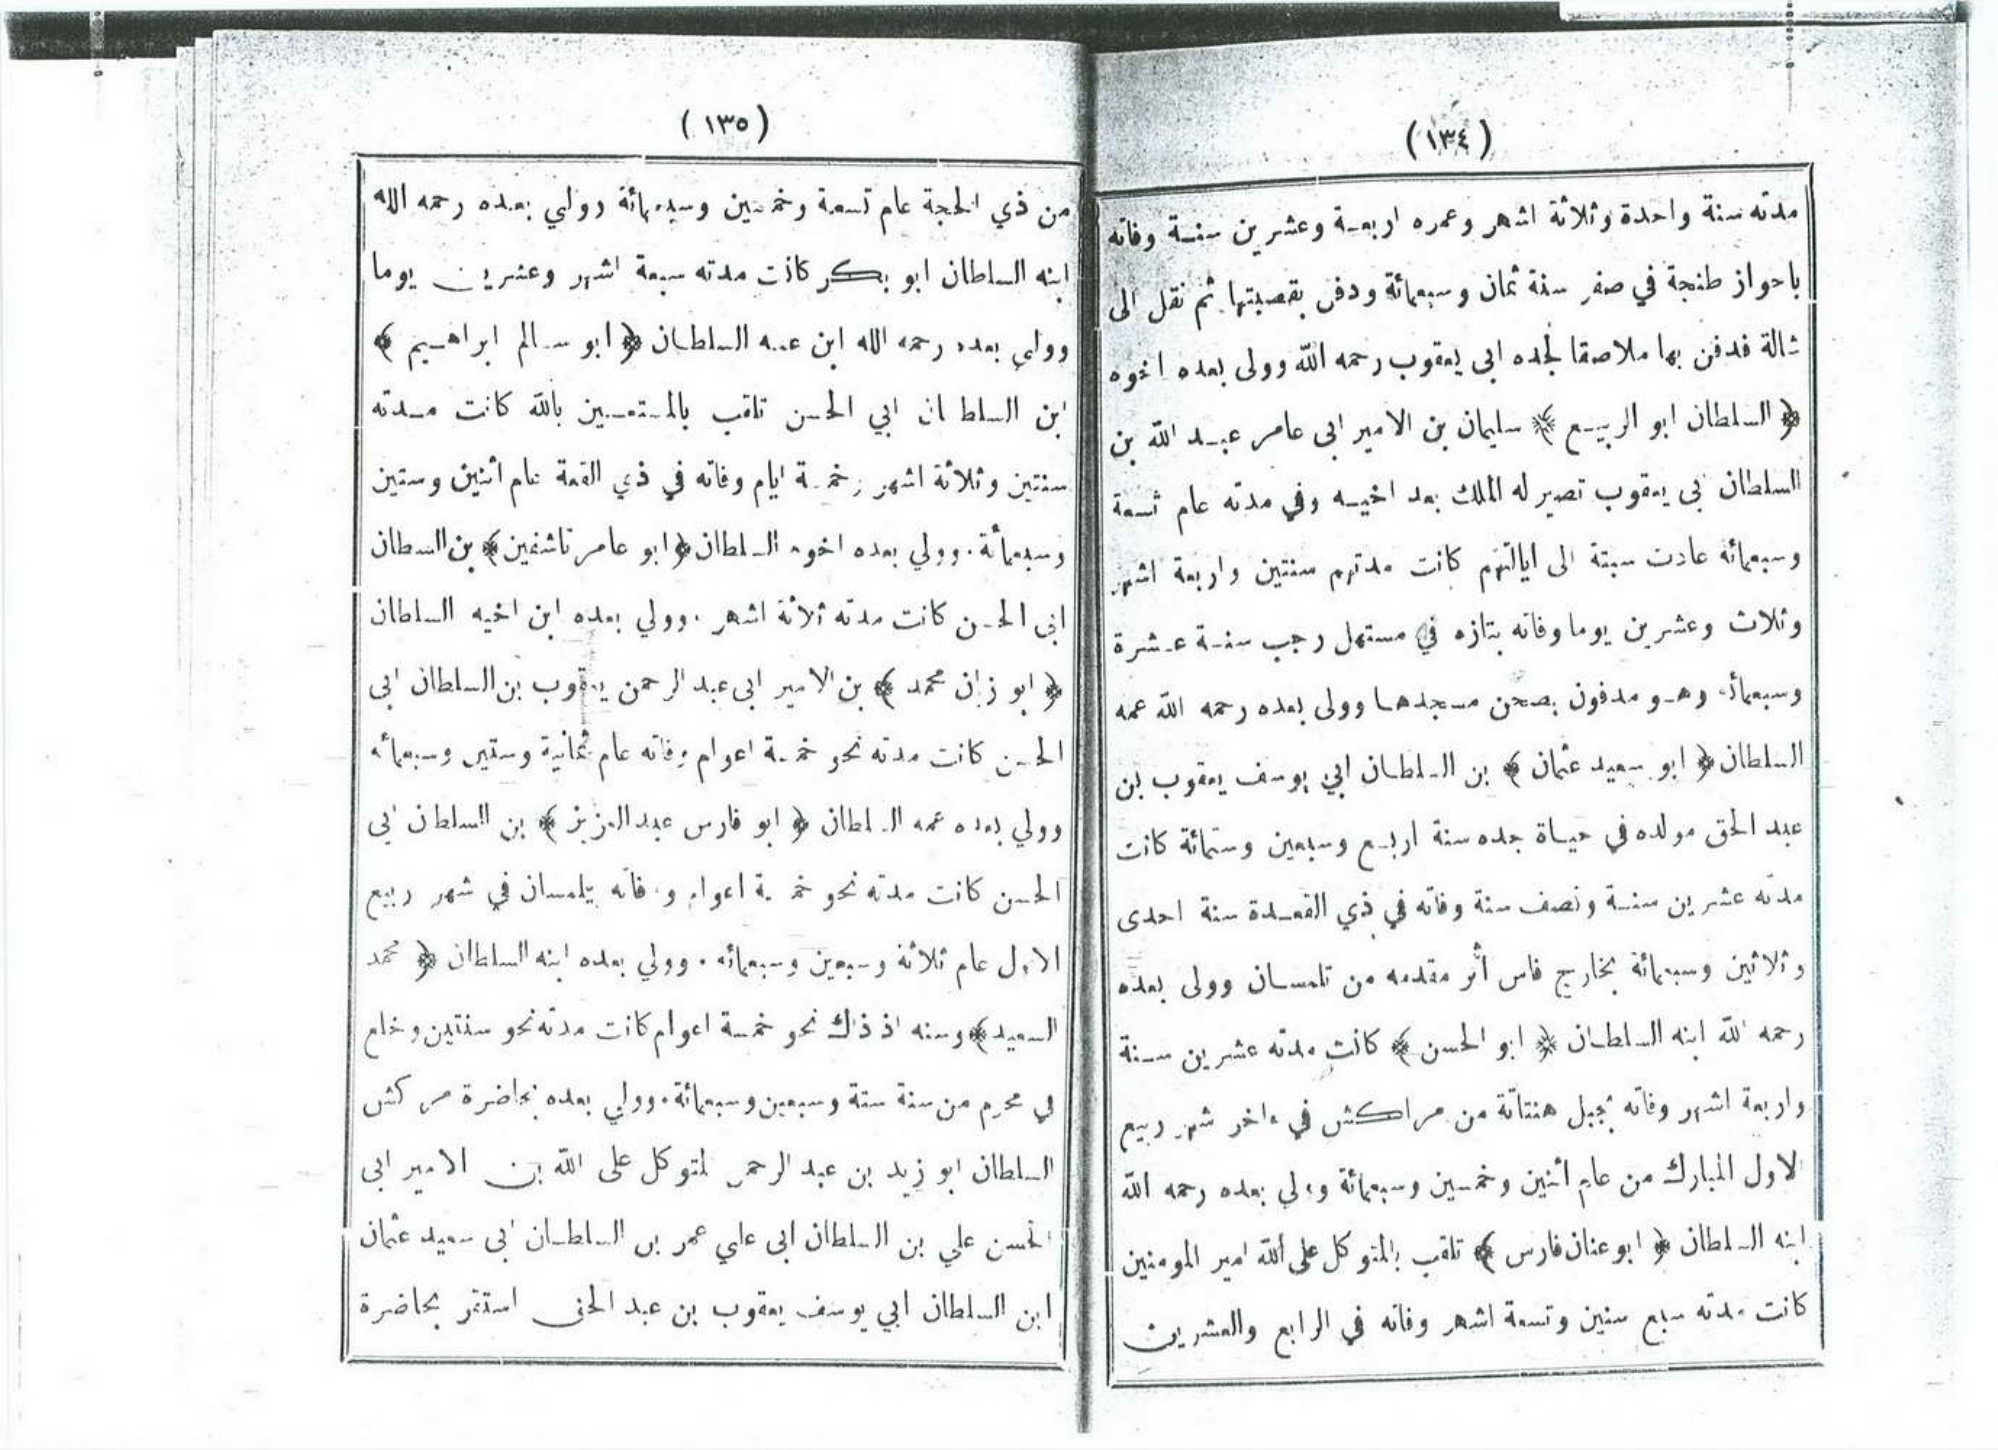 (١٣٤)
مدته سنة واحدة وثلاثة اشهر وعمره اربعة وعشرين سنة وفاته
باحواز طنجة في صفر سنة ثمان وسبعمائة ودفن بقصبتها ثم نقل الى
شالة فدفن بها ملاصقا لجده ابى يعقوب رحمه الله وولى بعده اخوه
﴿ السلطان ابو الربيع ﴾ سليمان بن الامير ابى عامر عبد الله بن
السلطان بى يعقوب تصير له الملك بعد اخيه وفي مدته عام تسعة
وسبعمائه عادت سبتة الى ايالتهم كانت مدتهم سنتين واربعة اشهر
وثلاث وعشرين يوما وفاته بتازه في مستهل رجب سنة عشرة
وسبعمائة وهو مدفون بصحن مسجدها وولى بعده رحمه الله عمه
السلطان ﴿ ابو سعيد عثمان ﴾ بن السلطان ابي يوسف يعقوب بن
عبد الحق مولده في حياة جده سنة اربع وسبعين وستمائة كانت
مدته عشرين سنة ونصف سنة وفاته في ذي القعدة سنة احدى
وثلاثين وسبعمائة بخارج فاس أثر مقدمه من تلمسان وولى بعده
رحمه الله ابنه السلطان ﴿ ابو الحسن ﴾ كانت مدته عشرين سنة
واربعة اشهر وفاته بجبل هنتاتة من مراكش في ءاخر شهر ربيع
الاول المبارك من عام أثنين وخمسين وسبعمائة وولي بعده رحمه الله
ابنه السلطان ﴿ ابو عنان فارس ﴾ تلقب بالمتوكل على الله امير المومنين
كانت مدته سبع سنين وتسعة اشهر وفاته في الرابع والعشرين
(١٣٥)
من ذي الحجة عام تسعة وخمسين وسبعمائة وولي بعده رحمه الله
ابنه السلطان ابو بكر كانت مدته سبعة اشهر وعشرين يوما
وولي بعده رحمه الله ابن عمه السلطان ﴿ ابو سالم ابراهيم ﴾
ابن السلطان ابي الحسن تلقب بالمستعين بالله كانت مدته
سنتين وثلاثة اشهر وخمسة ايام وفاته في ذي القعدة عام أثنين وستين
وسبعمائة . وولي بعده اخوه السلطان ﴿ ابو عامر تاشفين ﴾ بن السطان
ابى الحسن كانت مدته ثلاثة اشهر . وولي بعده ابن اخيه السلطان
﴿ ابو زيان محمد ﴾ بن الامير ابى عبد الرحمن يعقوب بن السلطان ابى
الحسن كانت مدته نحو خمسة اعوام وفاته عام ثمانية وستين وسبعمائه
وولي بعده عمه السلطان ﴿ ابو فارس عبد العزيز ﴾ بن السلطان ابي
الحسن كانت مدته نحو خمسة اعوام وفاته بتلمسان في شهر ربيع
الاول عام ثلاثة وسبعين وسبعمائه . وولي بعده ابنه السلطان ﴿ محمد
السعيد ﴾ وسنه اذ ذاك نحو خمسة اعوام كانت مدته نحو سنتين وخلع
في محرم من سنة ستة وسبعين وسبعمائة . وولي بعده بحاضرة مراكش
السلطان ابو زيد بن عبد الرحمن المتوكل على الله بن الامير ابى
الحسن علي بن السلطان ابى علي عمر بن السلطان ابى سعيد عثمان
ابن السلطان ابي يوسف يعقوب بن عبد الحق استقر بحاضرة